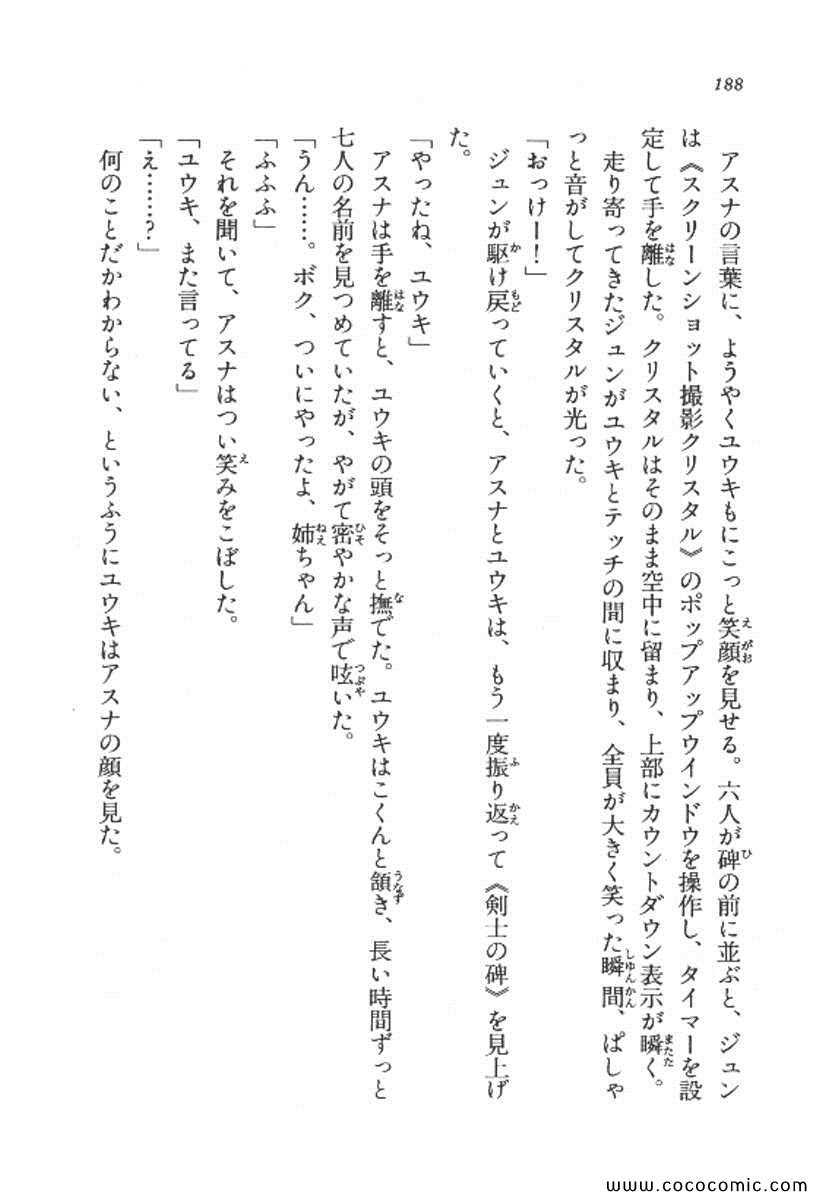 188
アスナの言葉に、ようやくユウキもにこっと笑顔を見せる。六人が碑の前に並ぶと、ジュン
は《スクリーンショット撮影クリスタル》のポップアップウインドウを操作し、タイマーを設
定して手を離した。クリスタルはそのまま空中に留まり、上部にカウントダウン表示が瞬く。
走り寄ってきたジュンがユウキとテッチの間に収まり、全員が大きく笑った瞬間、ぱしゃ
っと音がしてクリスタルが光った。
「おっけー！」
ジュンが駆け戻っていくと、アスナとユウキは、もう一度振り返って《剣士の碑》を見上げ
た。
「やったね、ユウキ」
アスナは手を離すと、ユウキの頭をそっと撫でた。ユウキはこくんと頷き、長い時間ずっと
七人の名前を見つめていたが、やがて密やかな声で呟いた。
「うん……。ボク、ついにやったよ、姉ちゃん」
「ふふふ」
それを聞いて、アスナはつい笑みをこぼした。
「ユウキ、また言ってる」
「え……？」
何のことだかわからない、というふうにユウキはアスナの顔を見た。
www.cococomic.com